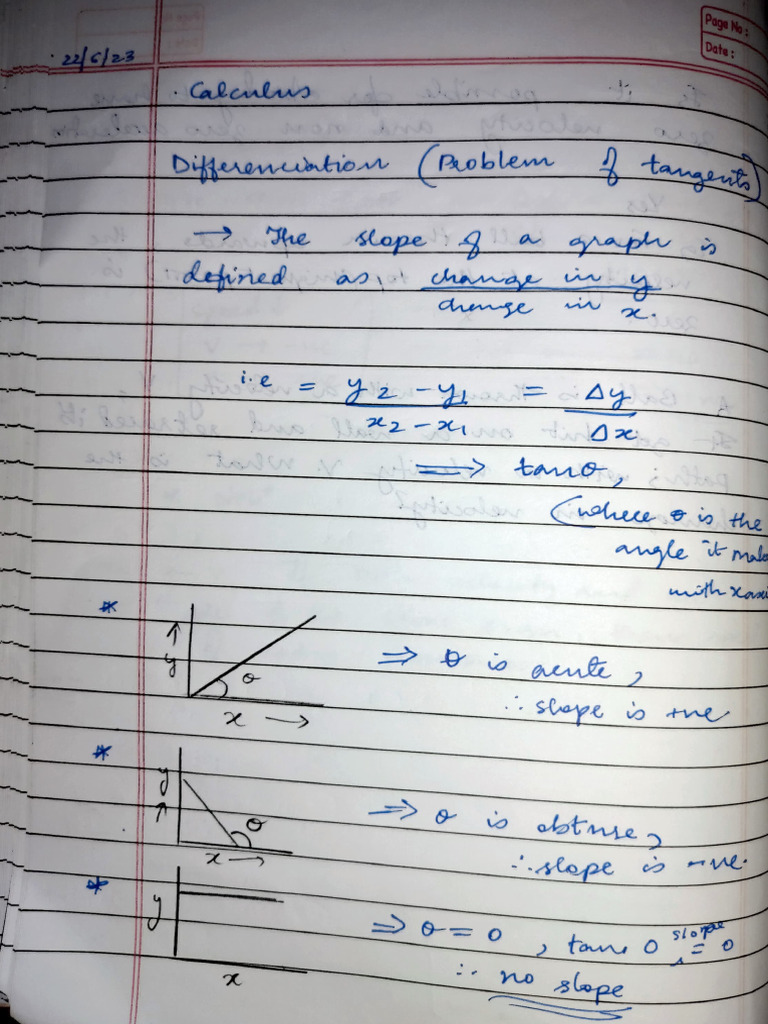 Page No :
Date :
22/6/23
. Calculus
Differenciation (Problem of tangents)
→ The slope of a graph is
defined as, change in y
change in x.
i.e = y2 - y1 = Δy
x2 - x1 Δx
⟹ tanθ,
(where θ is the
angle it make
with xaxi
* y → θ x → ⟹ θ is acute,
∴ slope is +ve
* y → θ x → ⟹ θ is obtuse,
∴ slope is -ve.
* y x ⟹ θ = 0 , tan 0 slope = 0
∴ no slope